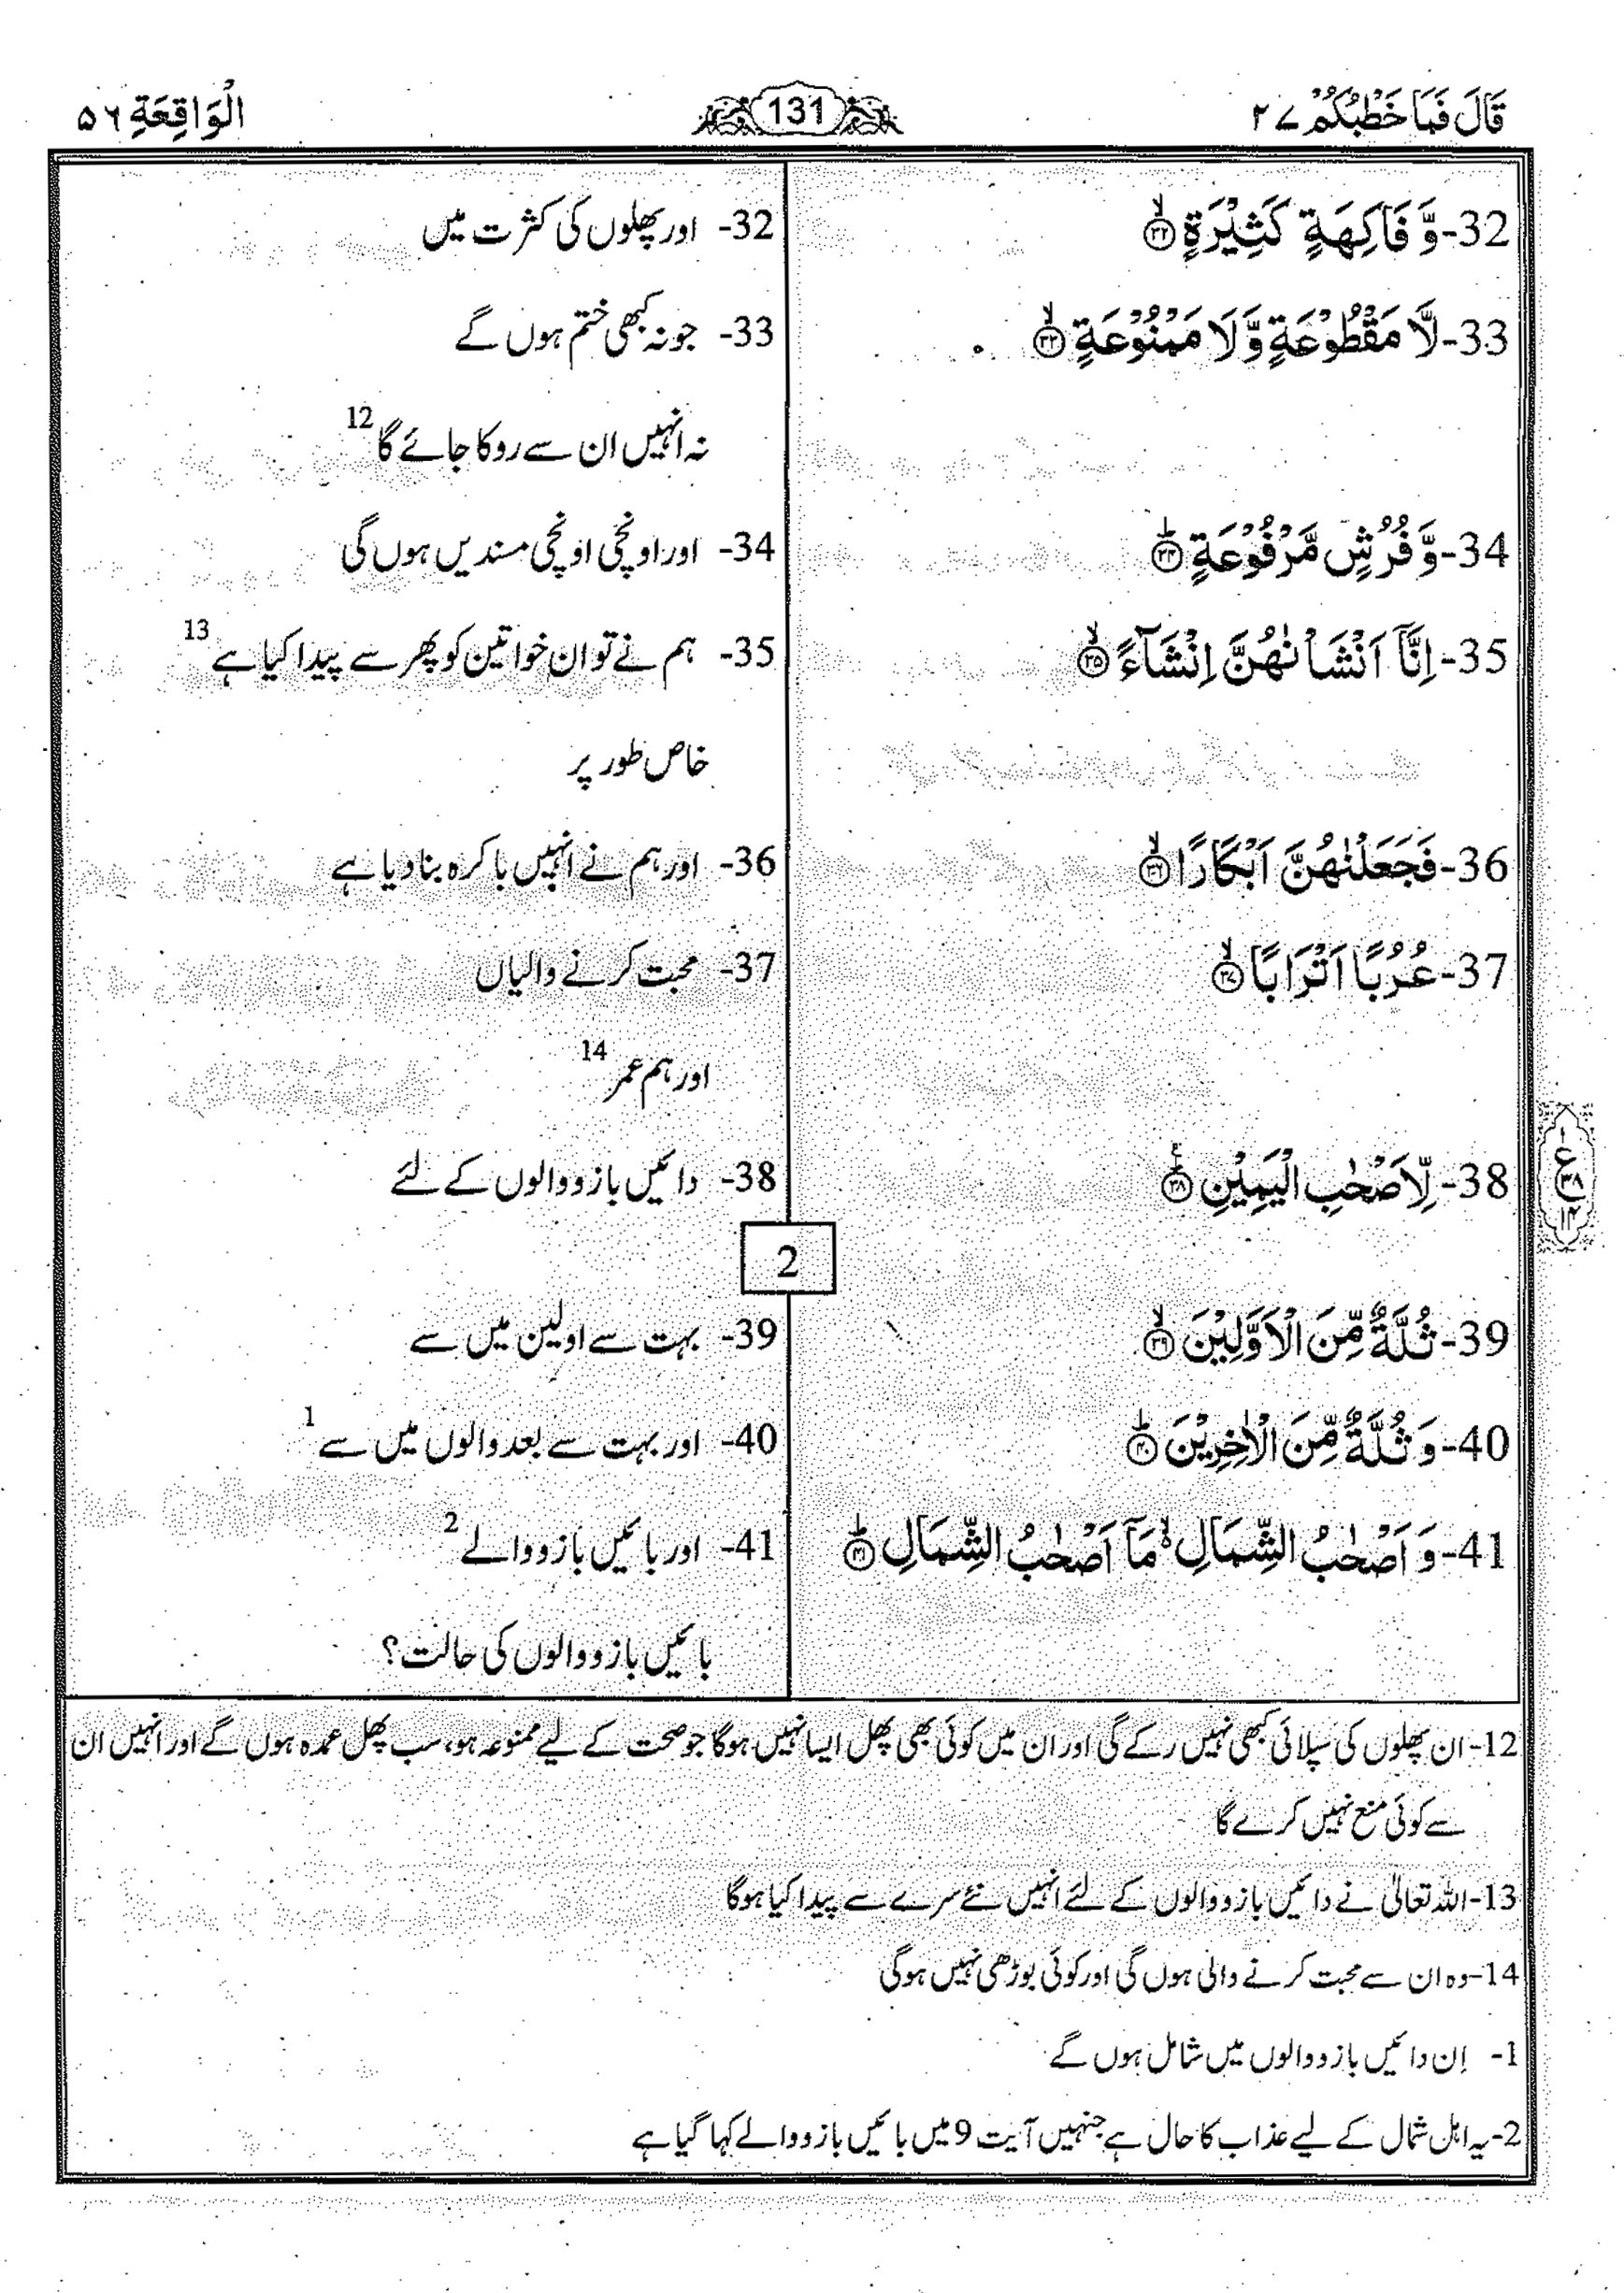 قَالَ فَمَا خَطْبُكُمْ ۲۷
131
الْوَاقِعَةِ ۵۶
32- وَّ فَاكِهَةٍ كَثِيْرَةٍ ۙ﴿۳۲﴾
32- اور پھلوں کی کثرت میں
33- لَّا مَقْطُوْعَةٍ وَّ لَا مَمْنُوْعَةٍ ۙ﴿۳۳﴾
33- جو نہ کبھی ختم ہوں گے
نہ انہیں ان سے روکا جائے گا 12
34- وَّ فُرُشٍ مَّرْفُوْعَةٍ ؕ﴿۳۴﴾
34- اور اونچی اونچی مسندیں ہوں گی
35- اِنَّاۤ اَنْشَاْنٰهُنَّ اِنْشَآءً ۙ﴿۳۵﴾
35- ہم نے تو ان خواتین کو پھر سے پیدا کیا ہے 13
خاص طور پر
36- فَجَعَلْنٰهُنَّ اَبْكَارًا ۙ﴿۳۶﴾
36- اور ہم نے انہیں باکرہ بنا دیا ہے
37- عُرُبًا اَتْرَابًا ۙ﴿۳۷﴾
37- محبت کرنے والیاں
اور ہم عمر 14
38- لِّاَصْحٰبِ الْيَمِيْنِ ؕ۠﴿۳۸﴾
38- دائیں بازو والوں کے لئے
ع
۳۸
۱۴
2
39- ثُلَّةٌ مِّنَ الْاَوَّلِيْنَ ۙ﴿۳۹﴾
39- بہت سے اولین میں سے
40- وَ ثُلَّةٌ مِّنَ الْاٰخِرِيْنَ ؕ﴿۴۰﴾
40- اور بہت سے بعد والوں میں سے 1
41- وَ اَصْحٰبُ الشِّمَالِ ۙ۬ مَاۤ اَصْحٰبُ الشِّمَالِ ؕ﴿۴۱﴾
41- اور بائیں بازو والے 2
بائیں بازو والوں کی حالت؟
12- ان پھلوں کی سپلائی کبھی نہیں رکے گی اور ان میں کوئی بھی پھل ایسا نہیں ہوگا جو صحت کے لیے ممنوعہ ہو، سب پھل عمدہ ہوں گے اور انہیں ان
سے کوئی منع نہیں کرے گا
13- اللہ تعالیٰ نے دائیں بازو والوں کے لئے انہیں نئے سرے سے پیدا کیا ہوگا
14- وہ ان سے محبت کرنے والی ہوں گی اور کوئی بوڑھی نہیں ہوگی
1- اِن دائیں بازو والوں میں شامل ہوں گے
2- یہ اہل شمال کے لیے عذاب کا حال ہے جنہیں آیت 9 میں بائیں بازو والے کہا گیا ہے